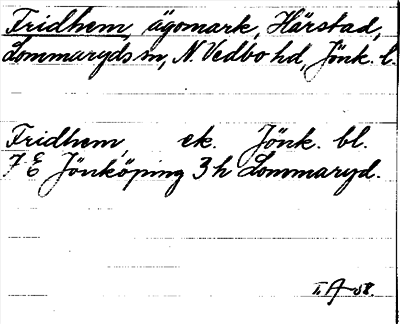 Fridhem, ägomark, Härstad,
Lommaryds sn, N. Vedbo hd, Jönk. l.
Fridhem, ek. Jönk. bl.
7 E Jönköping 3 h Lommaryd.
I. A-58.